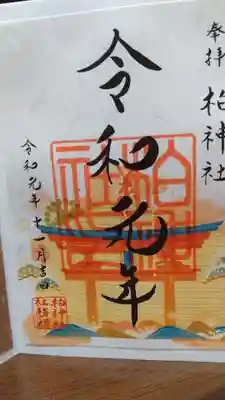 奉拝
柏神社
令和元年
令和元年十一月吉日
柏神社